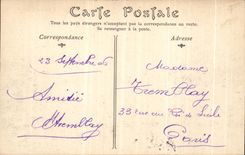 Carte Postale
Tous les pays étrangers n'acceptent pas la correspondance au verso.
Se renseigner à la poste.
Correspondance
Adresse
23 Septembre 06
Amitié
Tremblay
Madame
Tremblay
33 rue du Roi de Sicile
Paris